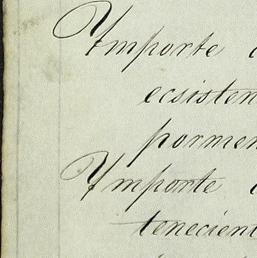 Ymporte
ecsisten
pormen
Ymporte
tenecient